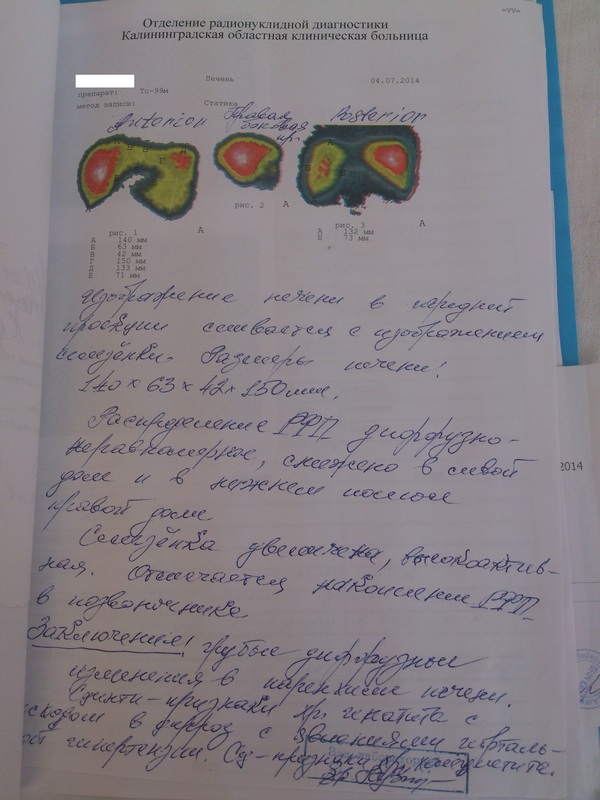 -77-
Отделение радионуклидной диагностики
Калининградская областная клиническая больница
Печень 04.07.2014
препарат: Тс-99м
метод записи: Статика
Anterior Правая боковая пр. Posterior
рис. 1 А
рис. 2 А
рис. 3 А
А 132 мм
Б 73 мм
А 140 мм
Б 63 мм
В 42 мм
Г 150 мм
Д 133 мм
Е 71 мм
Изображение печени в передней
проекции сливается с изображением
селезёнки. Размеры печени:
140 х 63 х 42 х 150 мм.
Распределение РФП диффузно-
неравномерное, снижено в левой
доле и в нижнем полюсе
правой доли.
Селезёнка увеличена, высокоактив-
ная. Отмечается накопление РФП
в позвоночнике
Заключение: грубые диффузные
изменения в паренхиме печени.
Сцинти-признаки хр. гепатита с
исходом в цирроз с явлениями порталь-
ной гипертензии. Сц-признаки
2014